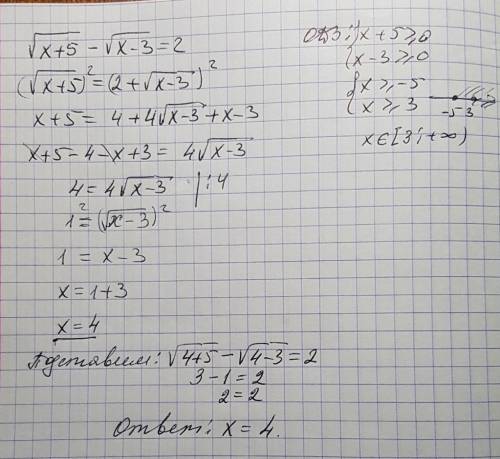 √x+5 - √x-3 = 2
(√x+5)² = (2+√x-3)²
x+5 = 4+4√x-3 + x-3
x+5-4-x+3 = 4√x-3
4 = 4√x-3 |:4
1² = (√x-3)²
1 = x-3
x = 1+3
x = 4
Подставим: √4+5 - √4-3 = 2
3-1 = 2
2 = 2
Ответ: x = 4.
ОДЗ: {x+5 ≥ 0
{x-3 ≥ 0
{x ≥ -5
{x ≥ 3
-5 3
x∈[3; +∞)